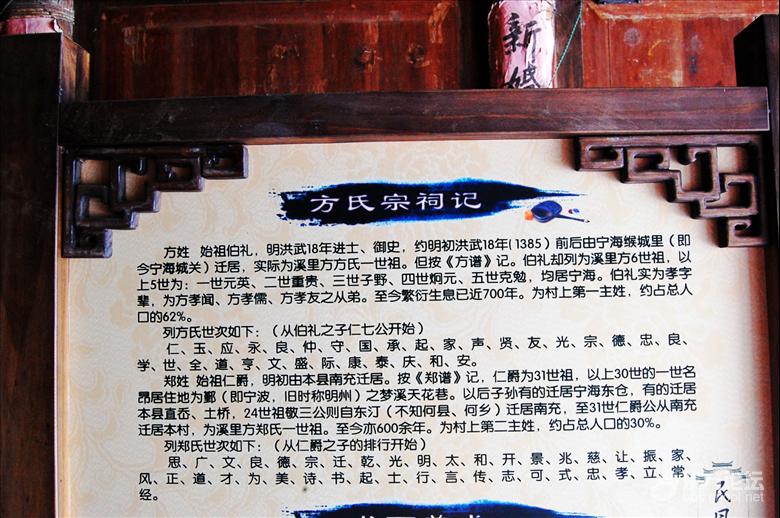 新婚
方氏宗祠记
方姓 始祖伯礼，明洪武18年进士、御史，约明初洪武18年(1385）前后由宁海缑城里（即
今宁海城关）迁居，实际为溪里方方氏一世祖。但按《方谱》记。伯礼却列为溪里方6世祖，以
上5世为：一世元英、二世重贵、三世子野、四世炯元、五世克勉，均居宁海。伯礼实为孝字
辈，为方孝闻、方孝儒、方孝友之从弟。至今繁衍生息已近700年。为村上第一主姓，约占总人
口的62%。
列方氏世次如下：（从伯礼之子仁七公开始）
仁、玉、应、永、良、仲、守、国、承、起、家、声、贤、友、光、宗、德、忠、良、
学、世、全、道、亨、文、盛、际、康、泰、庆、和、安。
郑姓 始祖仁爵，明初由本县南充迁居。按《郑谱》记，仁爵为31世祖，以上30世的一世名
昂居住地为鄞（即宁波，旧时称明州）之梦溪天花巷。以后子孙有的迁居宁海东仓，有的迁居
本县直岙、土桥，24世祖敬三公则自东汀（不知何县、何乡）迁居南充，至31世仁爵公从南充
迁居本村，为溪里方郑氏一世祖。至今亦600余年。为村上第二主姓，约占总人口的30%。
列郑氏世次如下：（从仁爵之子的排行开始）
思、广、文、良、德、宗、迁、乾、光、明、太、和、开、景、兆、慈、让、振、家、
风、正、道、才、为、美、诗、书、起、士、行、言、传、志、可、式、忠、孝、立、常、
经。
民